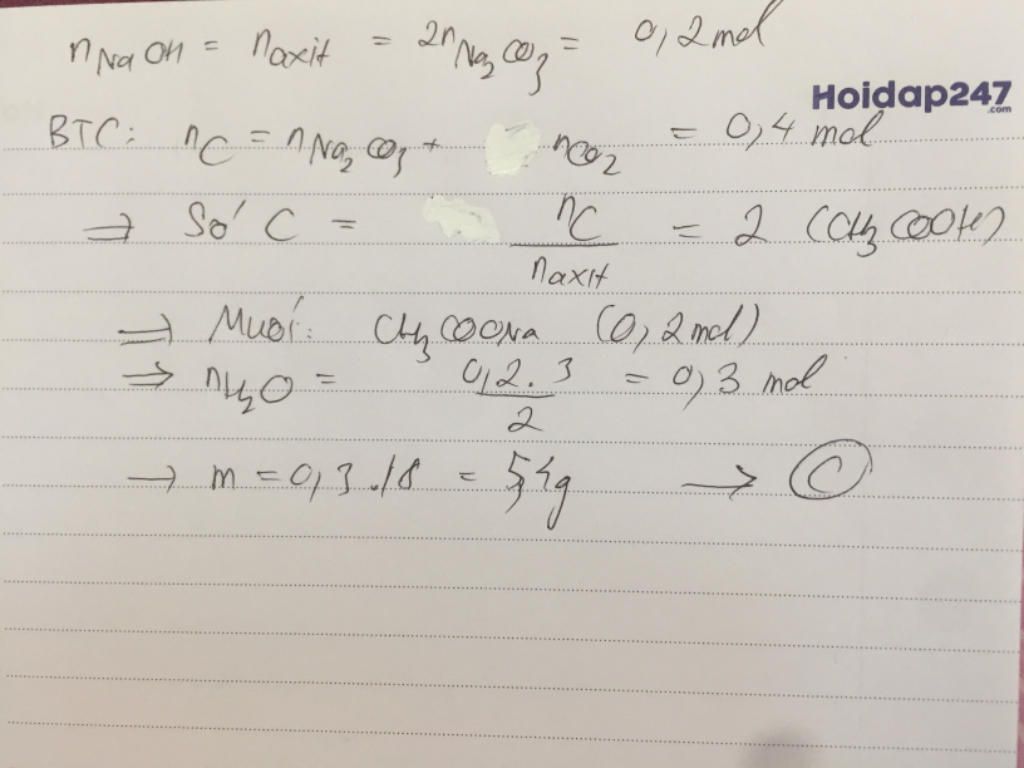 nNaOH = naxit = 2nNa2CO3 = 0,2 mol
Hoidap247
.com
BTC: nC = nNa2CO3 + nCO2 = 0,4 mol
=> Số C = nC / naxit = 2 (CH3COOH)
=> Muối: CH3COONa (0,2 mol)
=> nH2O = 0,2.3 / 2 = 0,3 mol
→ m = 0,3.18 = 5,4g → C